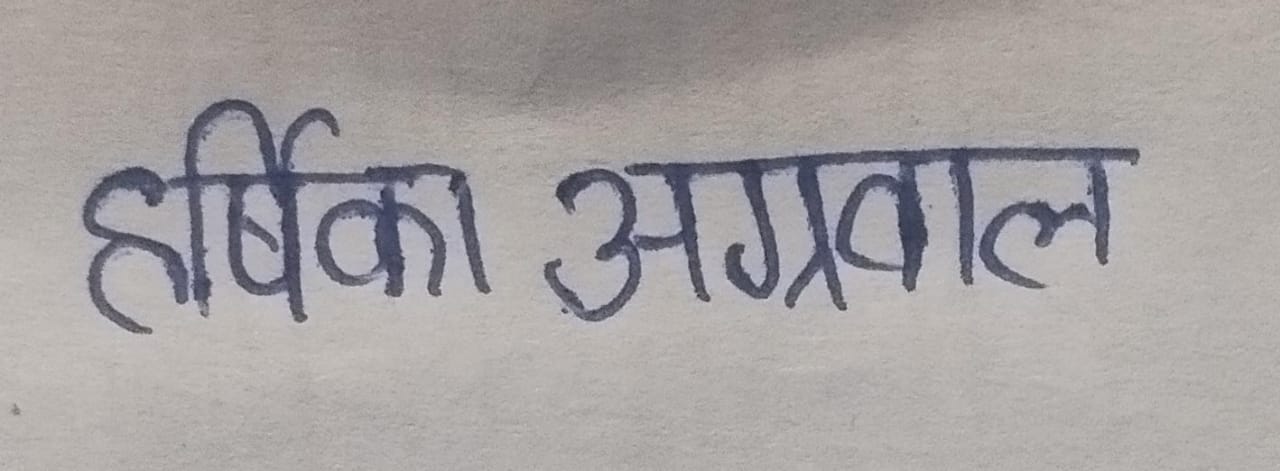 हर्षिका अग्रवाल